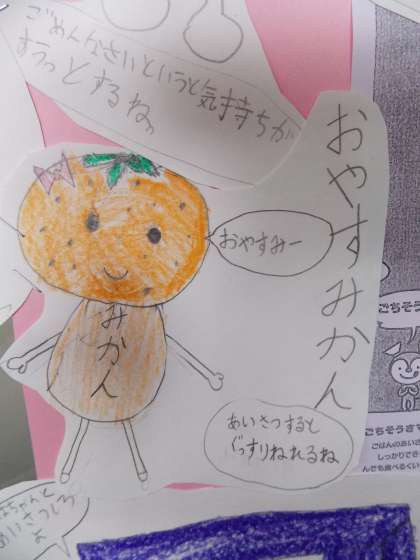 ごめんなさいというと気持ちが
スラっとするね。
おやすみかん
おやすみー
みかん
あいさつすると
ぐっすりねれるね
ごちそう
ごちそうさま
ごはんのあい
しっかりでき
んでも食べるくい
ちゃんと
あいさつしろ
よ